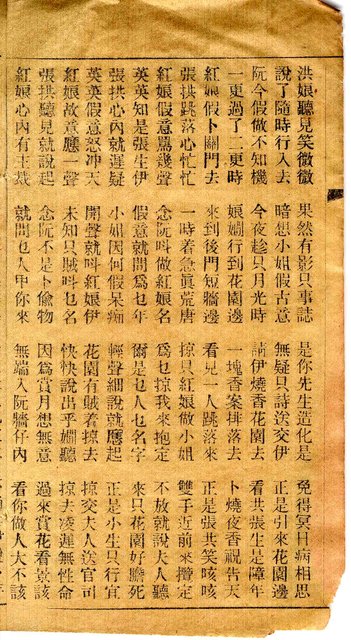 洪娘聽見笑微微 果然有影只事誌 是你先生造化是 免得冥日病相思
說了隨時行入去 暗想小姐假古意 無疑只詩送交伊 正是引來花園邊
阮今假做不知機 今夜趁只月光時 請伊燒香花園去 看共張生是障年
一更過了二更時 娘嫺行到花園邊 一塊香案排落去 卜燒夜香祝告天
紅娘假卜關門去 來到後門短牆邊 看見一人跳落來 正是張共笑咳咳
張拱跳落心忙忙 一時着急眞荒唐 掠只紅娘做小姐 雙手近前來攬定
紅娘假意罵幾聲 念阮呌做紅娘名 為乜掠我來抱定 不放就說夫人聽
英英知是張生伊 假意就問為乜年 爾是乜人乜名字 來只花園好膽死
張拱心內就遲疑 小姐因何假呆痴 輕聲細說就應起 正是小生只行宜
英英假意怒冲天 開聲就呌紅娘伊 花園有賊着掠去 掠交夫人送官司
紅娘故意應一聲 未知只賊呌乜名 快快說出乎嫺聽 掠去凌遲無性命
張拱聽見就說起 念阮不是卜偷物 因為賞月想無意 過來賞花看景該
紅娘心內有主裁 就問乜人甲你來 無端入阮牆仔內 看你做人大不該